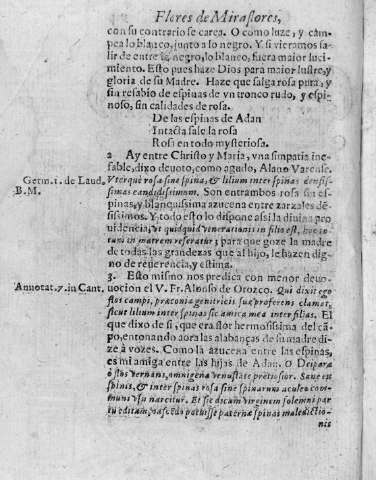 Flores de Miraflores,
con su contrario se carea. O como luze, y cam-
pea lo blanco, junto a lo negro. Y si vieramos sa-
lir de entre lo negro, lo blanco, fuera maior luci-
miento. Esto pues haze Dios para maior lustre, y
gloria de su Madre. Haze que salga rosa pura, y
sin resabio de espinas de vn tronco rudo, y espi-
noso, sin calidades de rosa.
De las espinas de Adan
Intacta sale la rosa
Rosa en todo mysteriosa.
2 Ay entre Christo y Maria, vna simpatia ine-
fable, dixo deuoto, como agudo, Alano Varense.
Germ. 1. de Laud. Vterque rosa sine spina, & lilium inter spinas densis-
B. M. simas candidissimum. Son entrambos rosa sin es-
pinas, y blanquissima azucena entre zarzales dē-
sissimos. Y todo esto lo dispone assi la diuina pro
uidencia, vt quidquid venerationis in filio est, hoc to-
tum in matrem referatur; para que goze la madre
de todas las grandezas que al hijo, le hazen dig-
no de reuerencia, y estima.
3. Esto mismo nos predica con menor deuo-
Annotat. 7. in Cant. uocion el V. Fr. Alonso de Orozco. Qui dixit ego
flos campi, præconia genitricis suæ proferens clamat,
sicut lilium inter spinas sic amica mea inter filias. El
que dixo de si, que era flor hermosissima del cā-
po, entonando aora las alabanças de su madre di-
ze à vozes. Como la azucena entre las espinas,
es mi amiga entre las hijas de Adan. O Deipara
ò flos vernans, omnigena venustate pretiosior. Sane ex
spinis, & inter spinas rosa sine spinarum aculeo com-
muni vsu nascitur. Et sic dicum virginem solemni par
tu editam, nascendo potuisse paternæ spinas maledictio-
nis